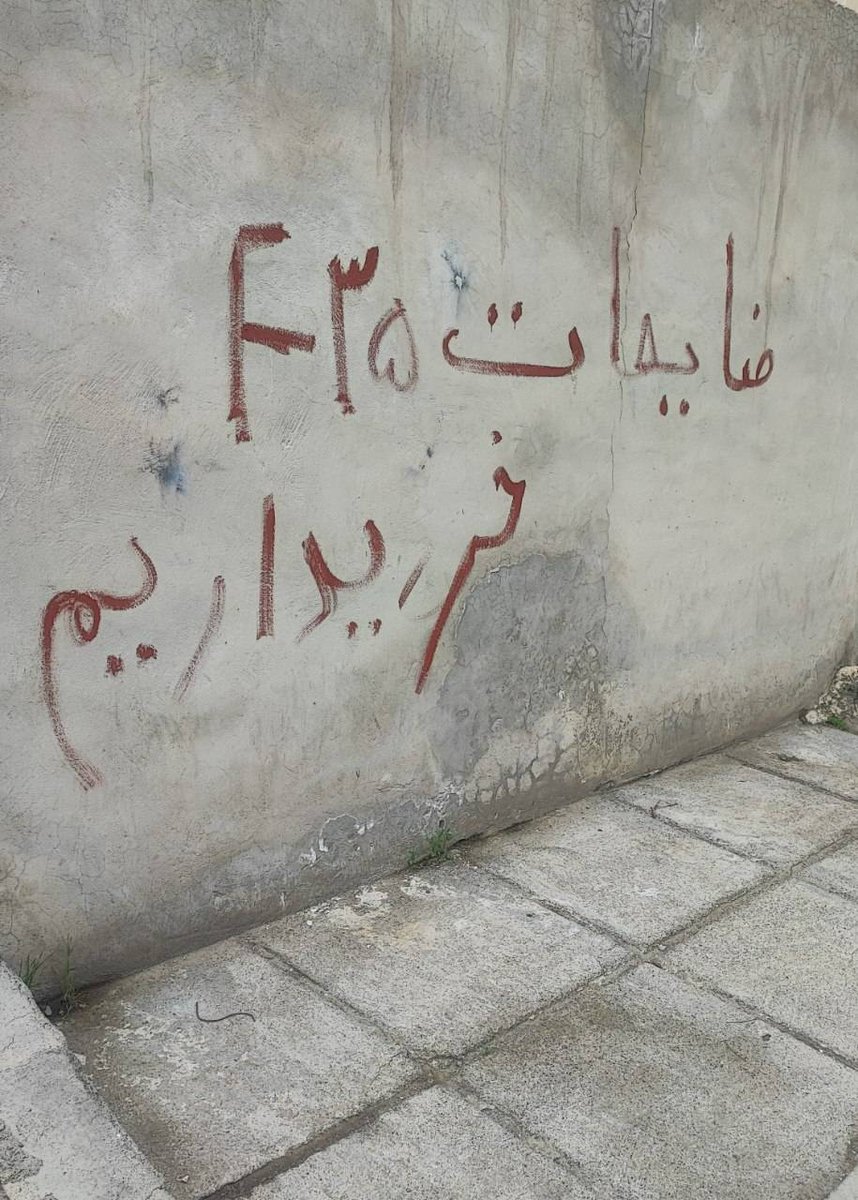 ضایعات F۳۵
خریداریم